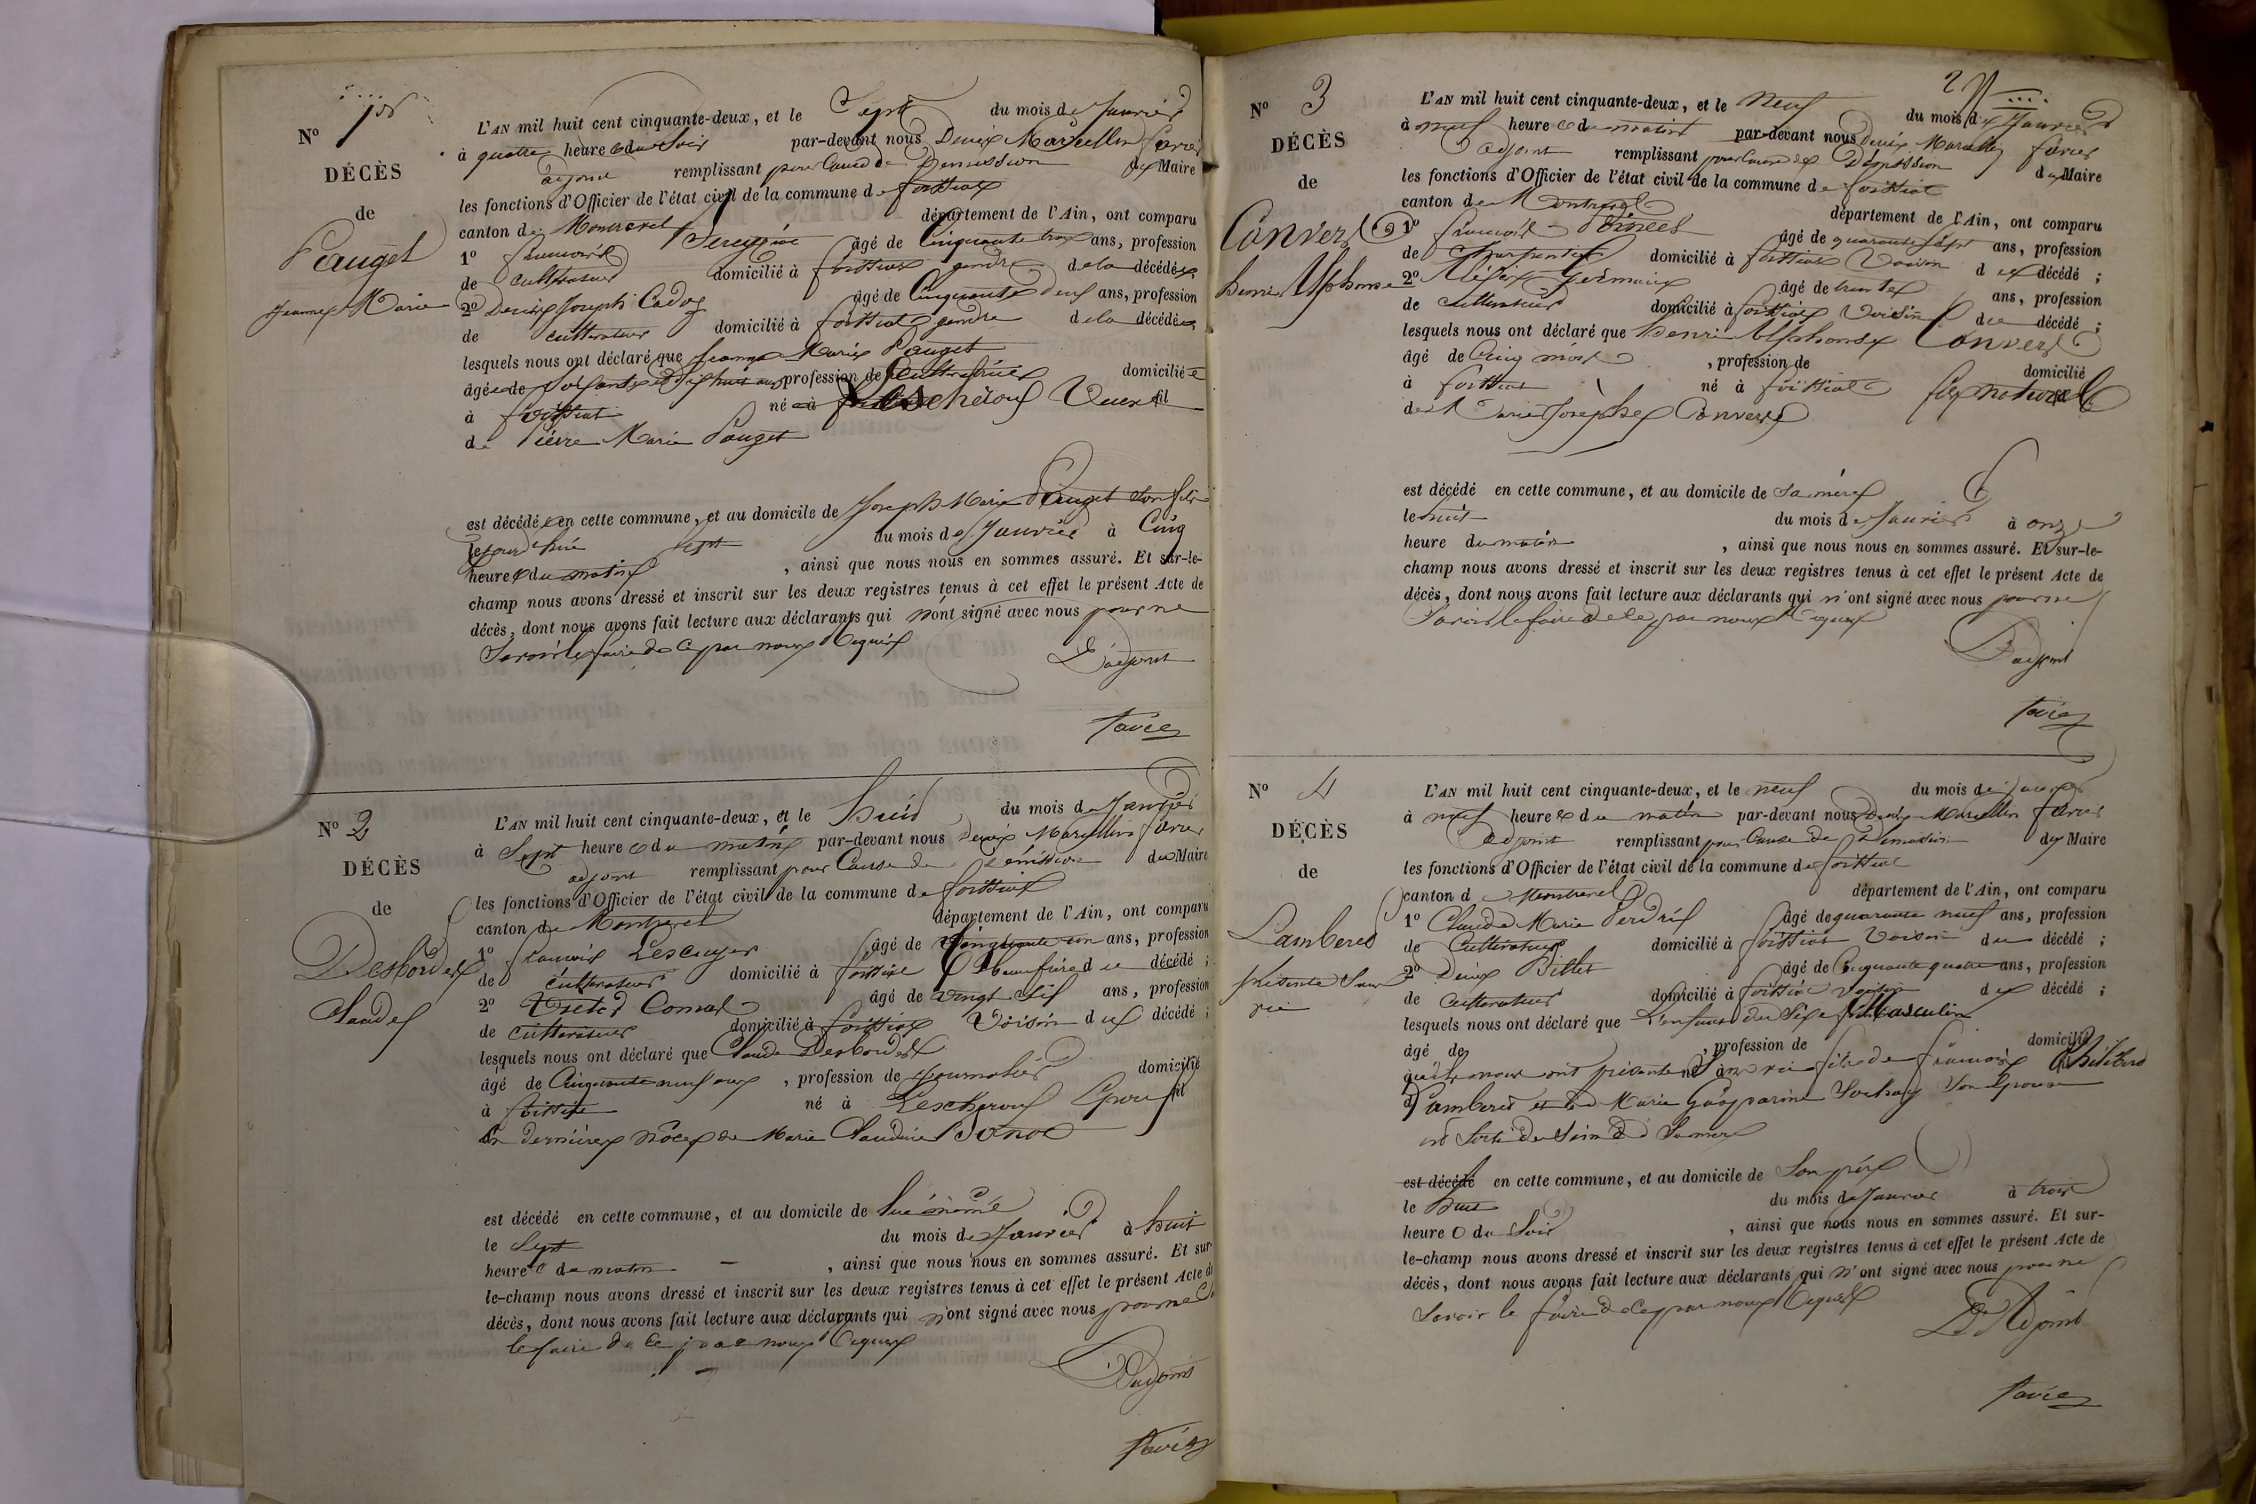 Nº 1er
DÉCÈS
de
Pauget
Jeanne Marie
L'AN mil huit cent cinquante-deux, et le Sept du mois de Janvier
à quatre heure du Soir par-devant nous Denis Marcellin favier
adjoint remplissant pour Cause de Demission du Maire
les fonctions d'Officier de l'état civil de la commune de foissiat
canton de Montrevel département de l'Ain, ont comparu
1º françois âgé de Cinquante trois ans, profession
de cultivateur domicilié à foissiat gendre de la décédée,
2º Denis Joseph Cadoz âgé de Cinquante deux ans, profession
de cultivateur domicilié à foissiat gendre de la décédée,
lesquels nous ont déclaré que Jeanne Marie Pauget
âgée de profession de Cultivatrice domiciliée
à foissiat né à Lescheroux Veuve fil
de Pierre Marie Pauget
est décédée en cette commune, et au domicile de Joseph Marie Pauget Son fils
le jourd'hui sept du mois de Janvier à Cinq
heure du matin, ainsi que nous nous en sommes assuré. Et sur-le-
champ nous avons dressé et inscrit sur les deux registres tenus à cet effet le présent Acte de
décès, dont nous avons fait lecture aux déclarants qui n'ont signé avec nous pour ne
Savoir le faire de ce par nous Requis
L'adjoint
favier
Nº 2
DÉCÈS
de
Desbordes
Claude
L'AN mil huit cent cinquante-deux, et le huit du mois de Janvier
à Sept heure du matin par-devant nous Denis Marcellin favier
adjoint remplissant pour Cause de Démission du Maire
les fonctions d'Officier de l'état civil de la commune de foissiat
canton de Montrevel département de l'Ain, ont comparu
1º françois Lescuyer âgé de Cinquante un ans, profession
de cultivateur domicilié à foissiat Beaufrère du décédé ;
2º Convert âgé de vingt Six ans, profession
de cultivateur domicilié à foissiat Voisin du décédé ;
lesquels nous ont déclaré que Claude Desbordes
âgé de Cinquante neuf ans, profession de Journalier domicilié
à foissiat né à Lescheroux Epoux fil
En dernières nôces de Marie Claudine
est décédé en cette commune, et au domicile de lui même
le Sept du mois de Janvier à huit
heure du matin, ainsi que nous nous en sommes assuré. Et sur-
le-champ nous avons dressé et inscrit sur les deux registres tenus à cet effet le présent Acte de
décès, dont nous avons fait lecture aux déclarants qui n'ont signé avec nous pour ne
le faire de ce par nous Requis
L'adjoint
favier
2
Nº 3
DÉCÈS
de
Convers
henri Alphonse
L'AN mil huit cent cinquante-deux, et le Neuf du mois de Janvier
à neuf heure du matin par-devant nous Denis Marcellin favier
adjoint remplissant pour Cause de Démission du Maire
les fonctions d'Officier de l'état civil de la commune de foissiat
canton de Montrevel département de l'Ain, ont comparu
1º françois âgé de quarante Sept ans, profession
de Charpentier domicilié à foissiat Voisin du décédé ;
2º Germain âgé de trente ans, profession
de Cultivateur domicilié à foissiat Voisin du décédé ;
lesquels nous ont déclaré que henri Alphonse Convers
âgé de Cinq mois, profession de domicilié
à foissiat né à foissiat fils naturel
de Marie Josephe Convers
est décédé en cette commune, et au domicile de Sa mère
le huit du mois de Janvier à onze
heure du matin, ainsi que nous nous en sommes assuré. Et sur-le-
champ nous avons dressé et inscrit sur les deux registres tenus à cet effet le présent Acte de
décès, dont nous avons fait lecture aux déclarants qui n'ont signé avec nous pour ne
Savoir le faire de ce par nous Requis
L'adjoint
favier
Nº 4
DÉCÈS
de
Lamberet
présenté Sans
vie
L'AN mil huit cent cinquante-deux, et le neuf du mois de Janvier
à neuf heure du matin par-devant nous Denis Marcellin favier
adjoint remplissant pour Cause de Demission du Maire
les fonctions d'Officier de l'état civil de la commune de foissiat
canton de Montrevel département de l'Ain, ont comparu
1º Claude Marie Perdrix âgé de quarante neuf ans, profession
de Cultivateur domicilié à foissiat Voisin du décédé ;
2º Denis Billet âgé de Cinquante quatre ans, profession
de Cultivateur domicilié à foissiat Voisin du décédé ;
lesquels nous ont déclaré que L'enfant du Sexe Masculin
âgé de, profession de domicilié
qu'ils nous ont présenté né Sans vie fils de françois Philibert
Lamberet et de Marie Gasparine Sochay Son Epouse
est Sorti du Sein de Sa mère
est décédé en cette commune, et au domicile de Son père
le huit du mois de Janvier à trois
heure du Soir, ainsi que nous nous en sommes assuré. Et sur-
le-champ nous avons dressé et inscrit sur les deux registres tenus à cet effet le présent Acte de
décès, dont nous avons fait lecture aux déclarants qui n'ont signé avec nous pour ne
Savoir le faire de ce par nous Requis
L'Adjoint
favier